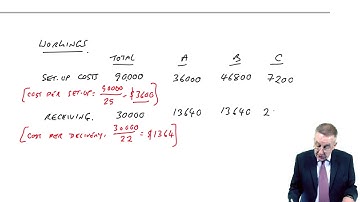 WORKINGS.
TOTAL A B C
SET-UP COSTS 90,000 36000 46800 7200
[COST PER SET-UP: 90000/25 = $3600]
RECEIVING. 30000 13640 13640 2
[COST PER DELIVERY: 30000/22 = $1364]